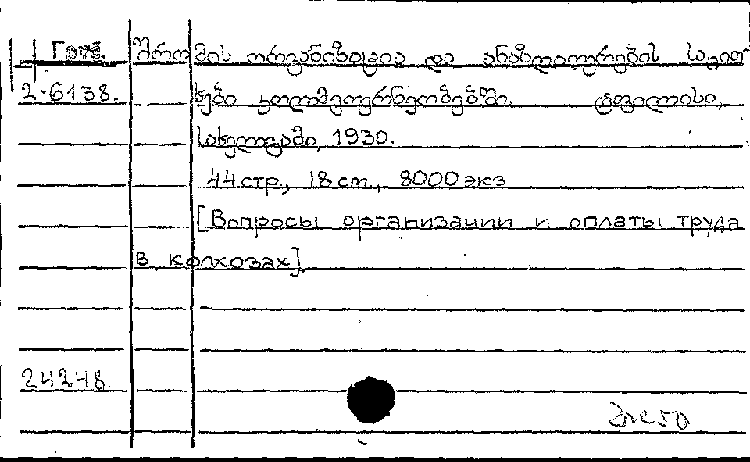 Груз. შრომის ორგანიზაცია და ანაზღაურების საკით
2-6138. ხები კოლმეურნეობებში. ტფილისი,
სახელგამი, 1930.
44 стр., 18 см., 8000 экз
[Вопросы организации и оплаты труда
в колхозах]
24248